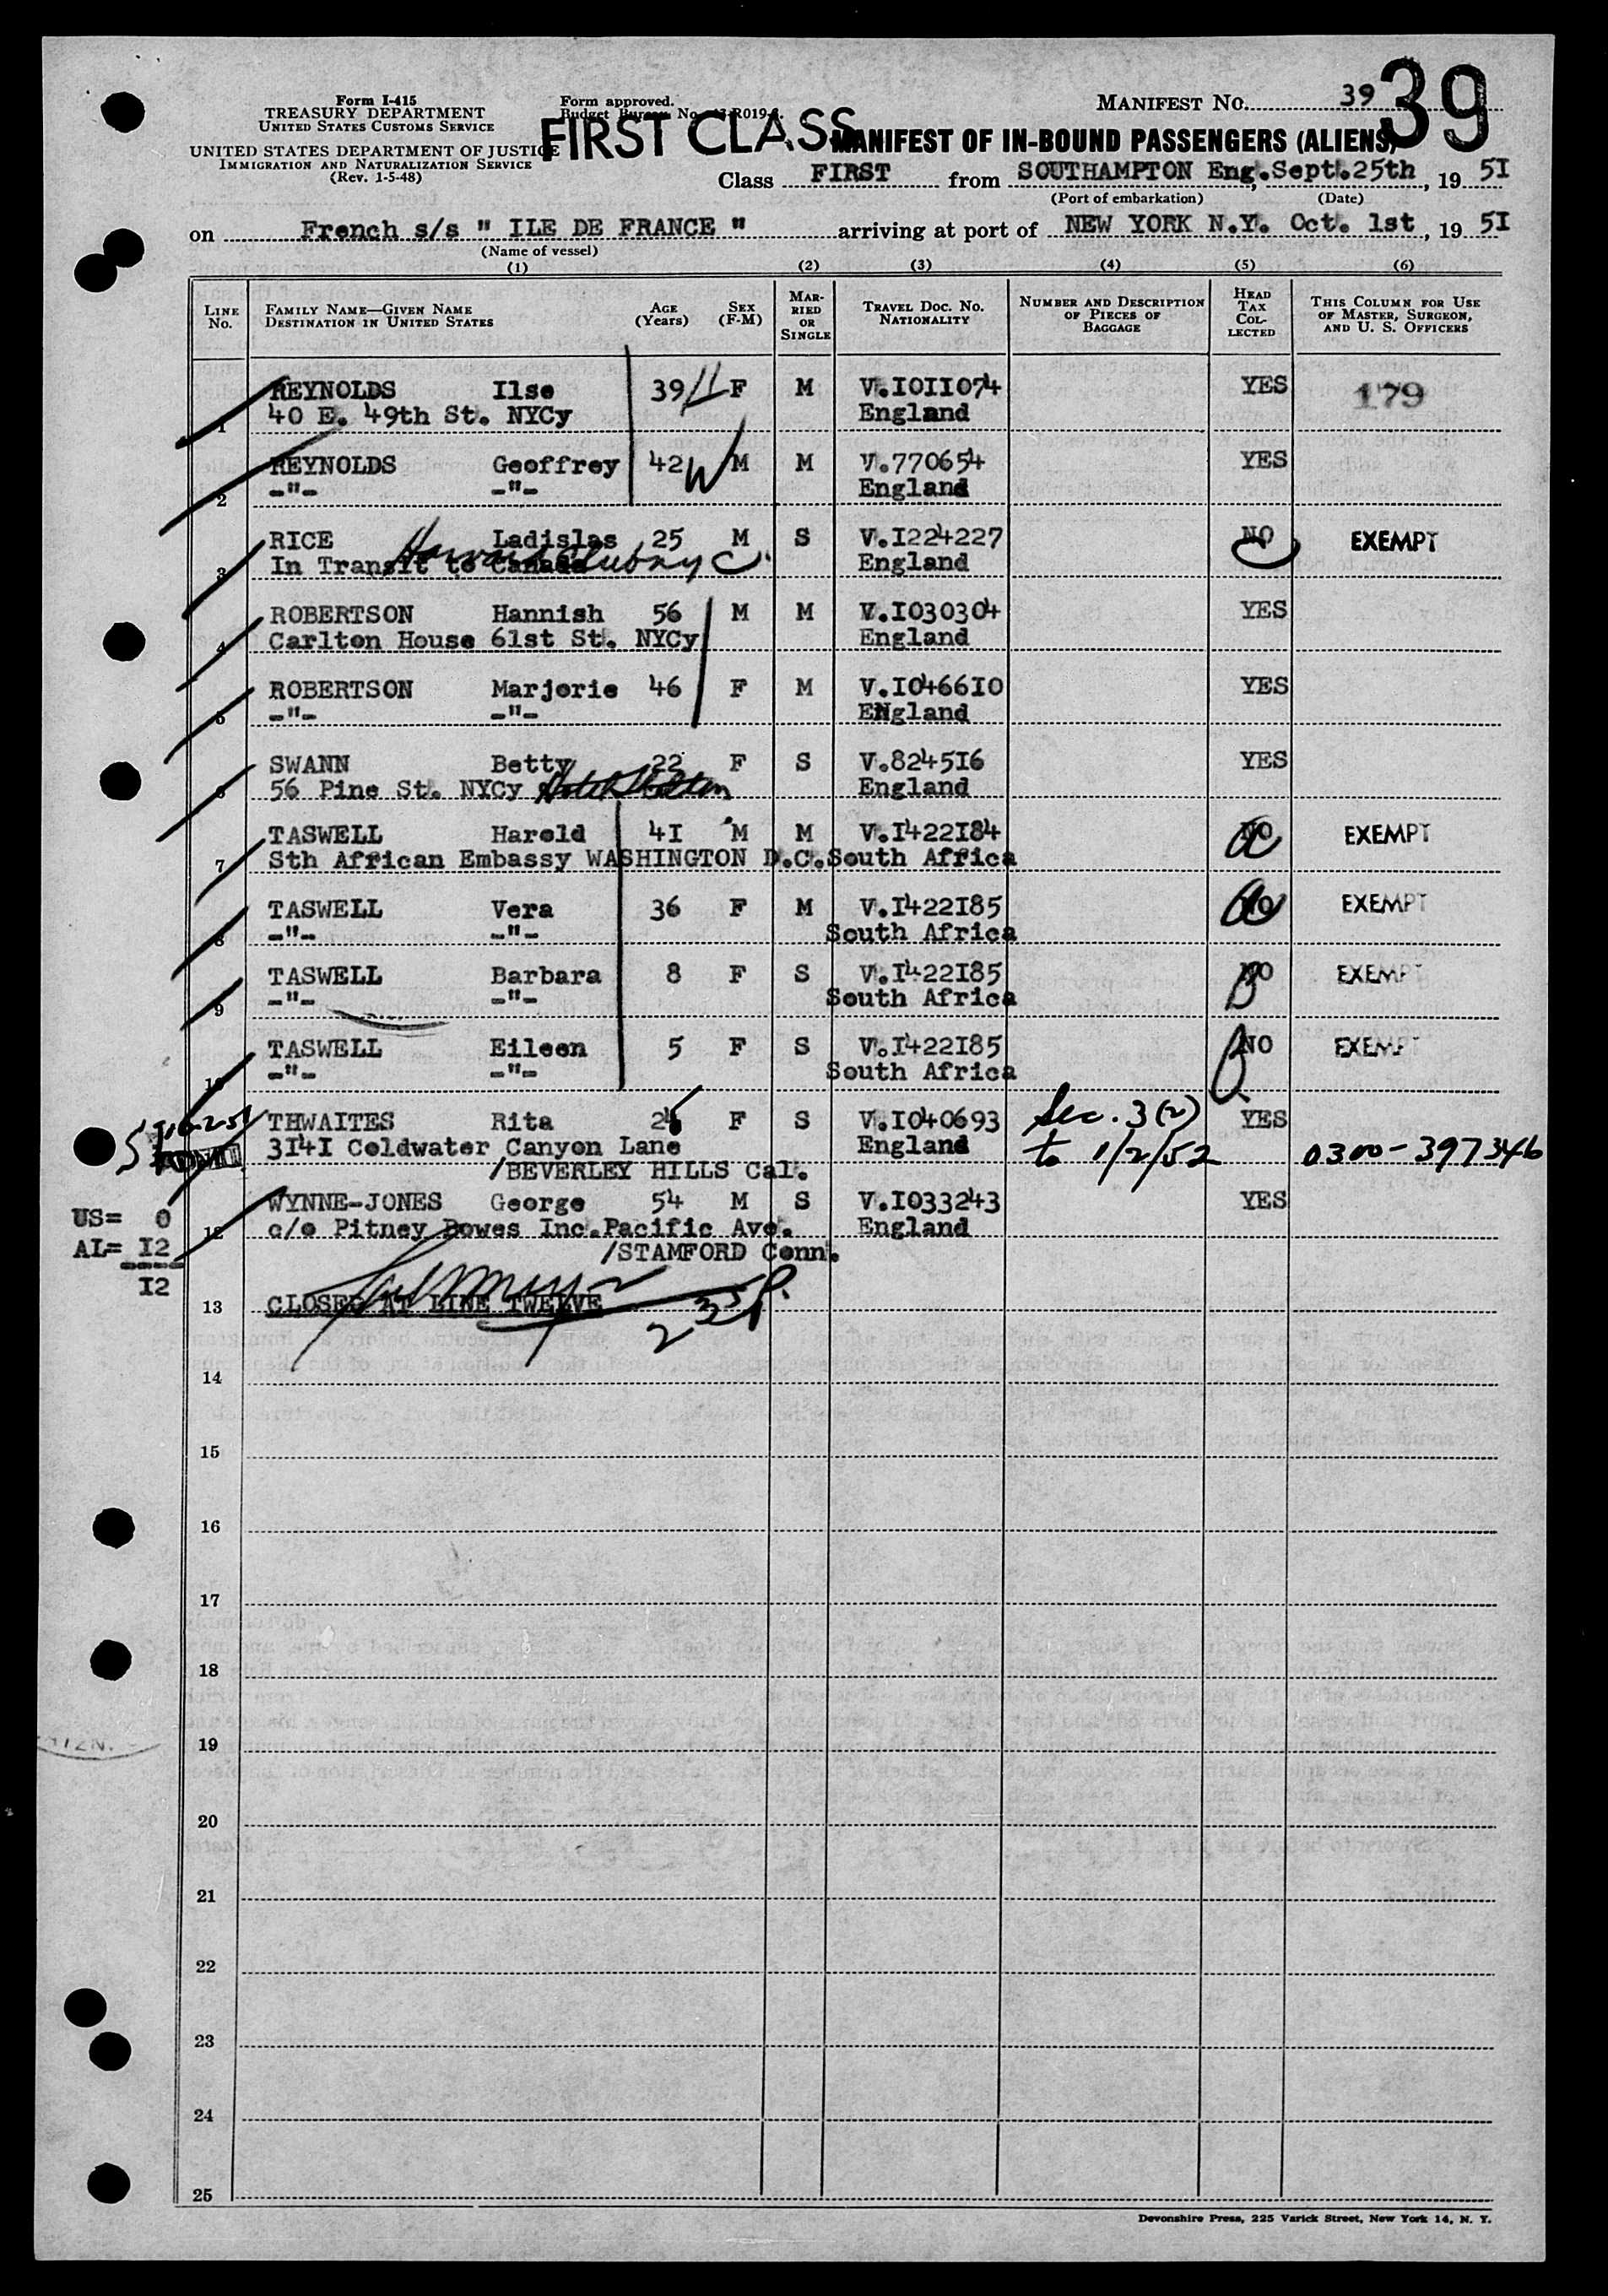 Form I-415
TREASURY DEPARTMENT
UNITED STATES CUSTOMS SERVICE
UNITED STATES DEPARTMENT OF JUSTICE
IMMIGRATION AND NATURALIZATION SERVICE
(Rev. 1-5-48)
Form approved.
Budget Bureau No.
FIRST CLASS
MANIFEST NO. 39
39
MANIFEST OF IN-BOUND PASSENGERS (ALIENS)
Class FIRST from SOUTHAMPTON Eng. Sept.25th, 19 5I
(Port of embarkation) (Date)
on French s/s " ILE DE FRANCE " arriving at port of NEW YORK N.Y. Oct. 1st, 19 5I
(Name of vessel)
(1) (2) (3) (4) (5) (6)
LINE NO. FAMILY NAME—GIVEN NAME DESTINATION IN UNITED STATES AGE (Years) SEX (F-M) MARRIED OR SINGLE TRAVEL DOC. NO. NATIONALITY NUMBER AND DESCRIPTION OF PIECES OF BAGGAGE HEAD TAX COLLECTED THIS COLUMN FOR USE OF MASTER, SURGEON, AND U. S. OFFICERS
REYNOLDS Ilse 39 F M V.IOII074 YES 179
1 40 E. 49th St. NYCy England
REYNOLDS Geoffrey 42 W M M V.770654 YES
2 -"- -"- England
RICE Ladislas 25 M S V.I224227 NO EXEMPT
3 In Transit to Canada England
Harvard Club NY C
ROBERTSON Hannish 56 M M V.I030304 YES
4 Carlton House 6Ist St. NYCy England
ROBERTSON Marjorie 46 F M V.I0466I0 YES
5 -"- -"- ENgland
SWANN Betty 22 F S V.8245I6 YES
6 56 Pine St. NYCy England
TASWELL Harold 4I M M V.I422I84 NO EXEMPT
7 Sth African Embassy WASHINGTON D.C. South Africa
TASWELL Vera 36 F M V.I422I85 NO EXEMPT
8 -"- -"- South Africa
TASWELL Barbara 8 F S V.I422I85 NO EXEMPT
9 -"- -"- South Africa
TASWELL Eileen 5 F S V.I422I85 NO EXEMPT
10 -"- -"- South Africa
THWAITES Rita F S V.I040693 Sec. 3(2) YES
3I4I Coldwater Canyon Lane England to 1/2/52 0300-397346
/BEVERLEY HILLS Cal.
WYNNE-JONES George 54 M S V.I033243 YES
12 c/o Pitney Bowes Inc.Pacific Ave. England
/STAMFORD Conn.
US= 0
AL= I2
I2
13 CLOSED AT LINE TWELVE
14
15
16
17
18
19
20
21
22
23
24
25
Devonshire Press, 225 Varick Street, New York 14, N. Y.